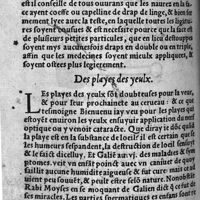 est conseille de tous ouurans que les naures en la fa-
ce ayent coeffe ou capelline de drap de linge, & bien her-
mement lyee auec la teste, en laquelle toutes ces ligitu-
res soyent cousues & est necessite pource que la face est
de plusieurs petites particules, que en icu destoupes
soyent mys aucunesfois draps en double ou en triple,
affin que les medecines soyent mieulx appliquees, &
soyent ostees plus legierement.
Des playes des yeulx.
Les playes des yeulx sõt doubteuses pour la veue,
& pour leur prochainete au cerueau : & ce que
tesmoigne Bienuenu iay veu pour les playes qui
estoyt enuiron les yeulx ensuyuir application du nerf
optique ou y venoit cataracte. Que diray ie des quãd
la playe est en la substance de loeil? il est certain que
les humeurs sespandent, la destruction de loeil sensuyt
& le faict dicelluy. Et Galiẽ au.iiij. des maladies & sym-
ptomes, veit vng enfãt poinct auec vn canifet de quoy
saillit aucune humidite aigueuse & fut cure: mais ad-
uient peu souuẽt, & peult estre selõ nature. Nonobstãt
Rabi Moyses en se moquant de Galien dict q̃ cest de
ses miracles. Les parties spermatiques es enfans sont